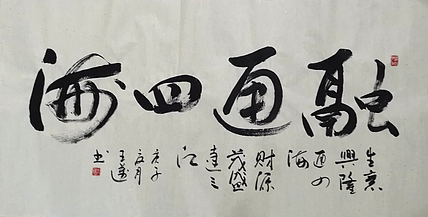 融通四海
生意
興隆
通四
海
財源
茂盛
達三
江
庚子
书